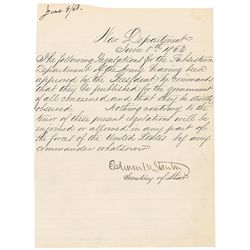 June 5/63.
War Department
June 5th 1863
The following Regulations for the Subsistence
Department of the Army having been
approved by the President he commands
that they be published for the government of
all concerned and that they be strictly
observed. Nothing contrary to the
tenor of these present regulations will be
enjoined or allowed in any part of
the forces of the United States by any
commander whatsoever.
Edwin M Stanton
Secretary of War